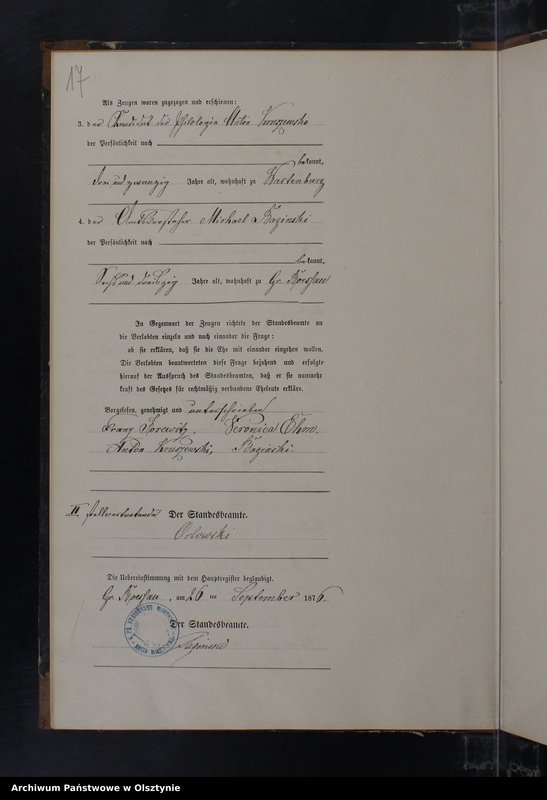 17
Als Zeugen waren zugezogen und erschienen:
3. der Kandidat der Philologie Anton Kruszewski
der Persönlichkeit nach
bekannt,
drei und zwanzig Jahre alt, wohnhaft zu Wartenburg
4. der Amtsvorsteher Michael Baginski
der Persönlichkeit nach
bekannt,
Sechs und dreißig Jahre alt, wohnhaft zu Gr.
In Gegenwart der Zeugen richtete der Standesbeamte an
die Verlobten einzeln und nach einander die Frage:
ob sie erklären, daß sie die Ehe mit einander eingehen wollen.
Die Verlobten beantworteten diese Frage bejahend und erfolgte
hierauf der Ausspruch des Standesbeamten, daß er sie nunmehr
kraft des Gesetzes für rechtmäßig verbundene Eheleute erkläre.
Vorgelesen, genehmigt und unterschrieben
Franz Veronica Öhm.
Anton Kruszewski, Baginski.
II stellvertretende Der Standesbeamte.
Orlowski
Die Uebereinstimmung mit dem Hauptregister beglaubigt.
Gr. , am 26 ten September 1876
Der Standesbeamte.
Baginski
Archiwum Państwowe w Olsztynie